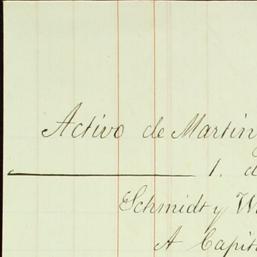 Activo de Martin
1. d
Schmidt y W
A Capit